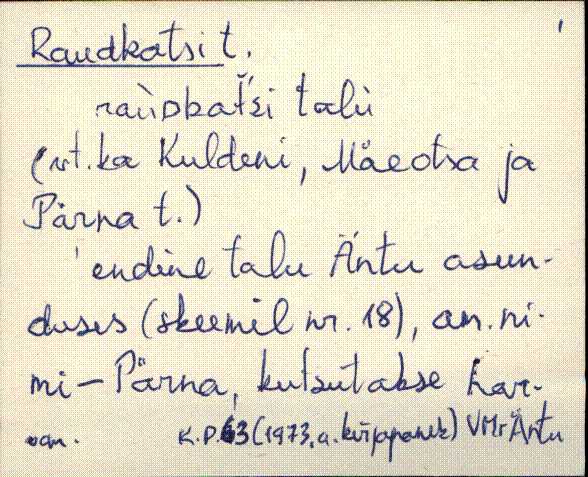 Raudkatsi t.
raùᴅkatši talù
(vt. ka Kuldeni, Mäeotsa ja
Pärna t.)
endine talu Äntu asun-
duses (skeemil nr. 18), am. ni-
mi - Pärna, kutsutakse har-
vam. K.P.63 (1973. a. kirjapanek) VMr Äntu